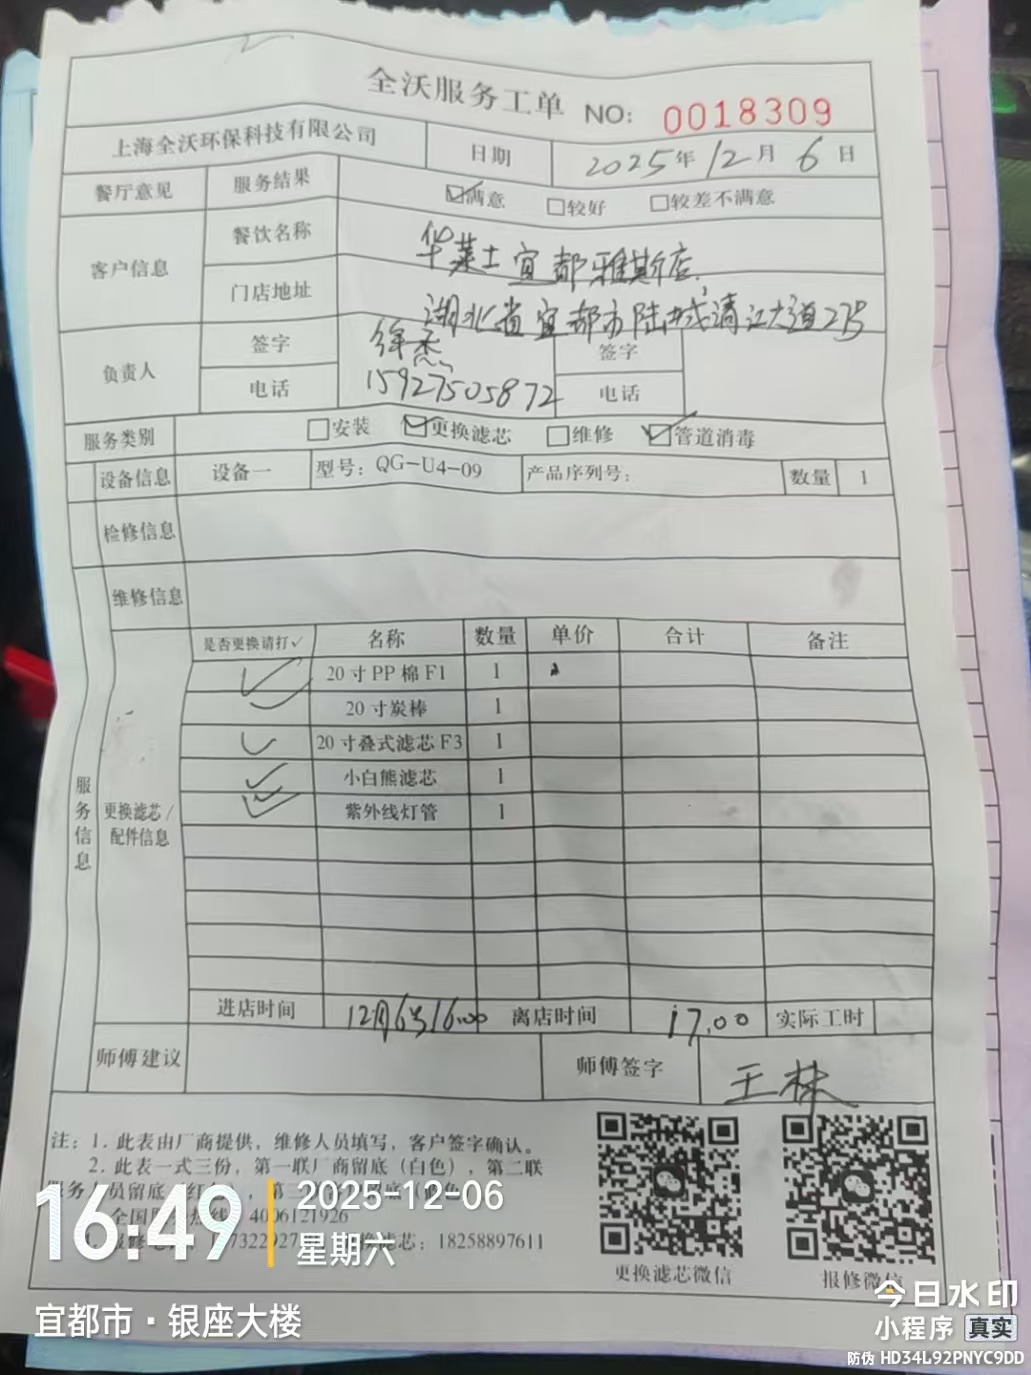 全沃服务工单 NO: 0018309
上海全沃环保科技有限公司 日期 2025年12月6日
餐厅意见 服务结果 满意 较好 较差不满意
客户信息 餐饮名称 华莱士宜都雅斯店
门店地址 湖北省宜都市陆城清江大道275
负责人 签字 徐杰 签字
电话 15927505872 电话
服务类别 安装 更换滤芯 维修 管道消毒
设备信息 设备一 型号: QG-U4-09 产品序列号: 数量 1
检修信息
维修信息
服务信息
更换滤芯/配件信息
是否更换请打✓ 名称 数量 单价 合计 备注
✓ 20寸PP棉F1 1
✓ 20寸炭棒 1
✓ 20寸叠式滤芯F3 1
✓ 小白熊滤芯 1
✓ 紫外线灯管 1
进店时间 12月6号16:00 离店时间 17.00 实际工时
师傅建议 师傅签字 王林
注: 1. 此表由厂商提供, 维修人员填写, 客户签字确认。
2. 此表一式三份, 第一联厂商留底 (白色), 第二联
服务人员留底
全国服务热线 4006121926
滤芯: 18258897611
更换滤芯微信 报修微信
16:49 2025-12-06
星期六
宜都市·银座大楼
今日水印
小程序 真实
防伪 HD34L92PNYC9DD